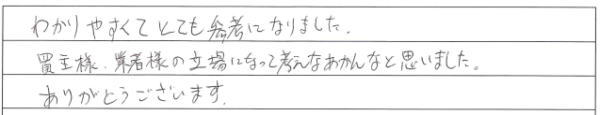 わかりやすくてとても参考になりました.
買主様、業者様の立場になって考えなあかんなと思いました。
ありがとうございます.